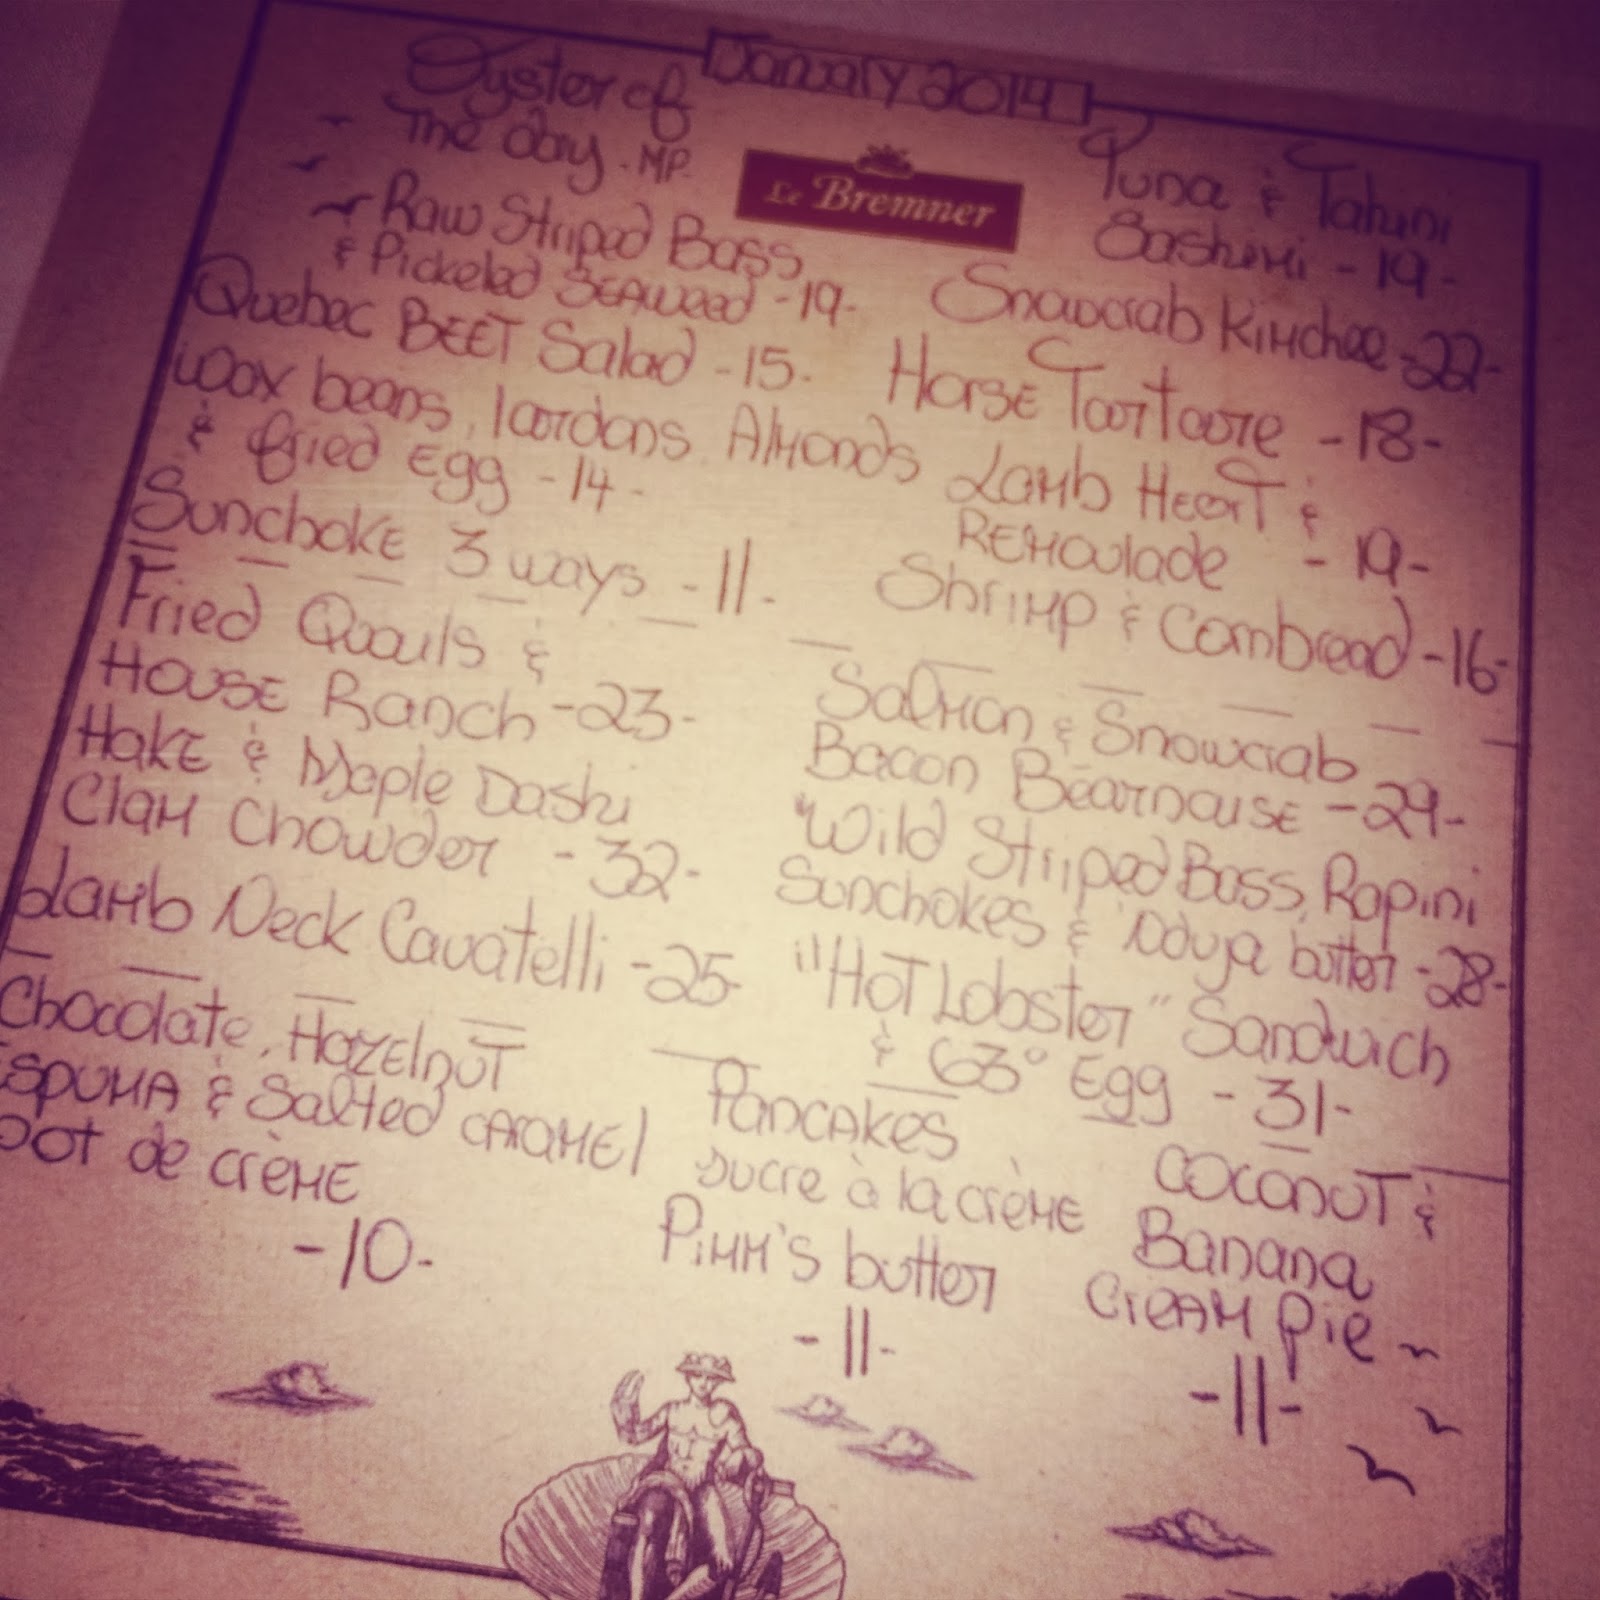 January 2014
Le Bremner
Oyster of
The Day - MP.
Raw Striped Bass
& Pickeled SEAWEED -19-
Quebec BEET Salad -15-
Wax beans, lardons, Almonds
& fried Egg -14-
Sunchoke 3 ways -11-
Tuna & Tahini
Sashimi -19-
Snowcrab Kimchee -22-
Horse Tartare -18-
Lamb Heart &
Remoulade -19-
Shrimp & Cornbread -16-
Fried Quails &
House Ranch -23-
Hake & Maple Dashi
Clam Chowder -32-
Lamb Neck Cavatelli -25-
Salmon & Snowcrab
Bacon Béarnaise -29-
Wild Striped Bass, Rapini
Sunchokes & 'Nduja butter -28-
"Hot Lobster" Sandwich
& 63° Egg -31-
Chocolate, Hazelnut
Espuma & Salted Caramel
pot de crème
-10-
Pancakes
sucre à la crème
Pimm's butter
-11-
Coconut &
Banana
Cream Pie
-11-